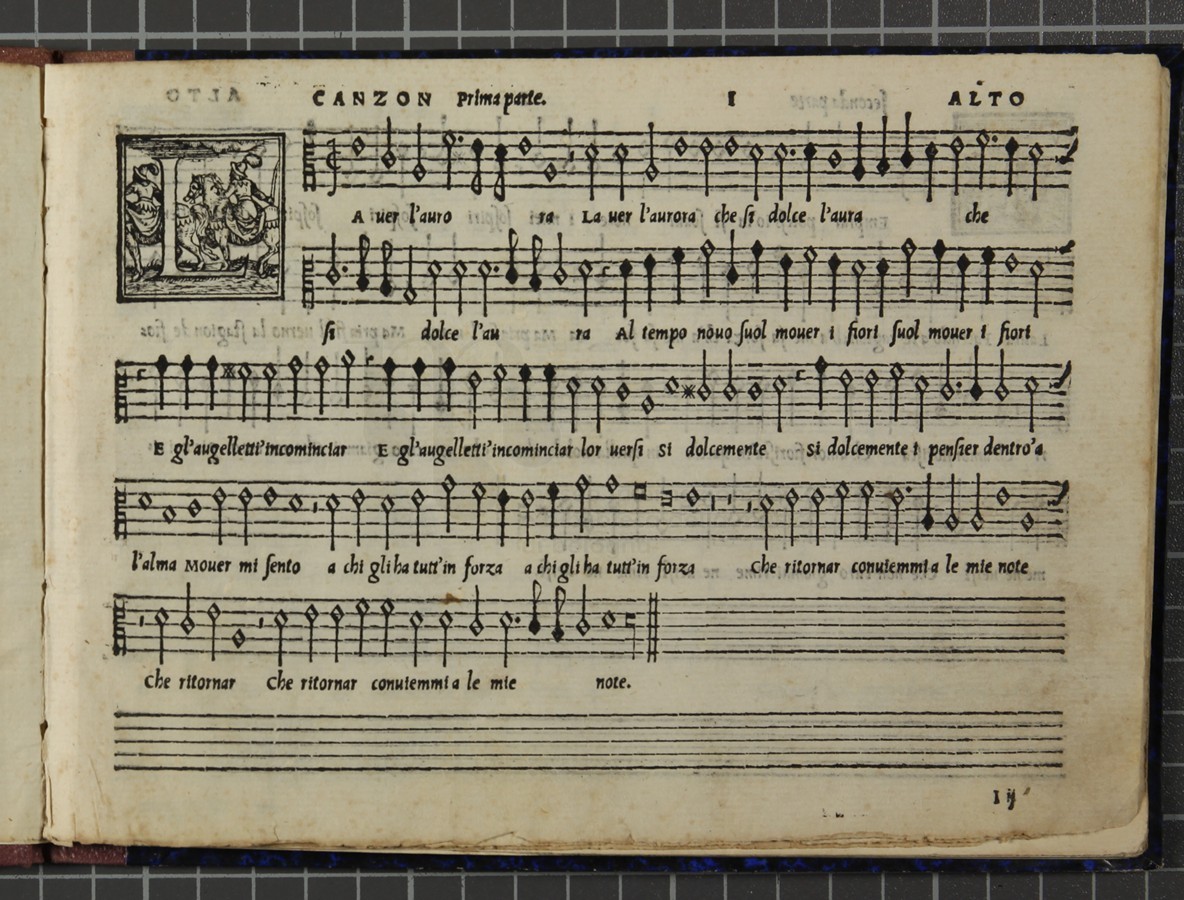 CANZON Prima parte. I ALTO
L A uer l'auro ra La uer l'aurora che si dolce l'aura che
si dolce l'au ra Al tempo nouo suol mouer i fiori suol mouer i fiori
E gl'augelletti'incominciar E gl'augelletti'incominciar lor uersi Si dolcemente si dolcemente i pensier dentro'a
l'alma Mouer mi sento a chi gli ha tutt'in forza a chi gli ha tutt'in forza Che ritornar conuiemmi a le mie note
Che ritornar Che ritornar conuiemmi a le mie note.
I ij